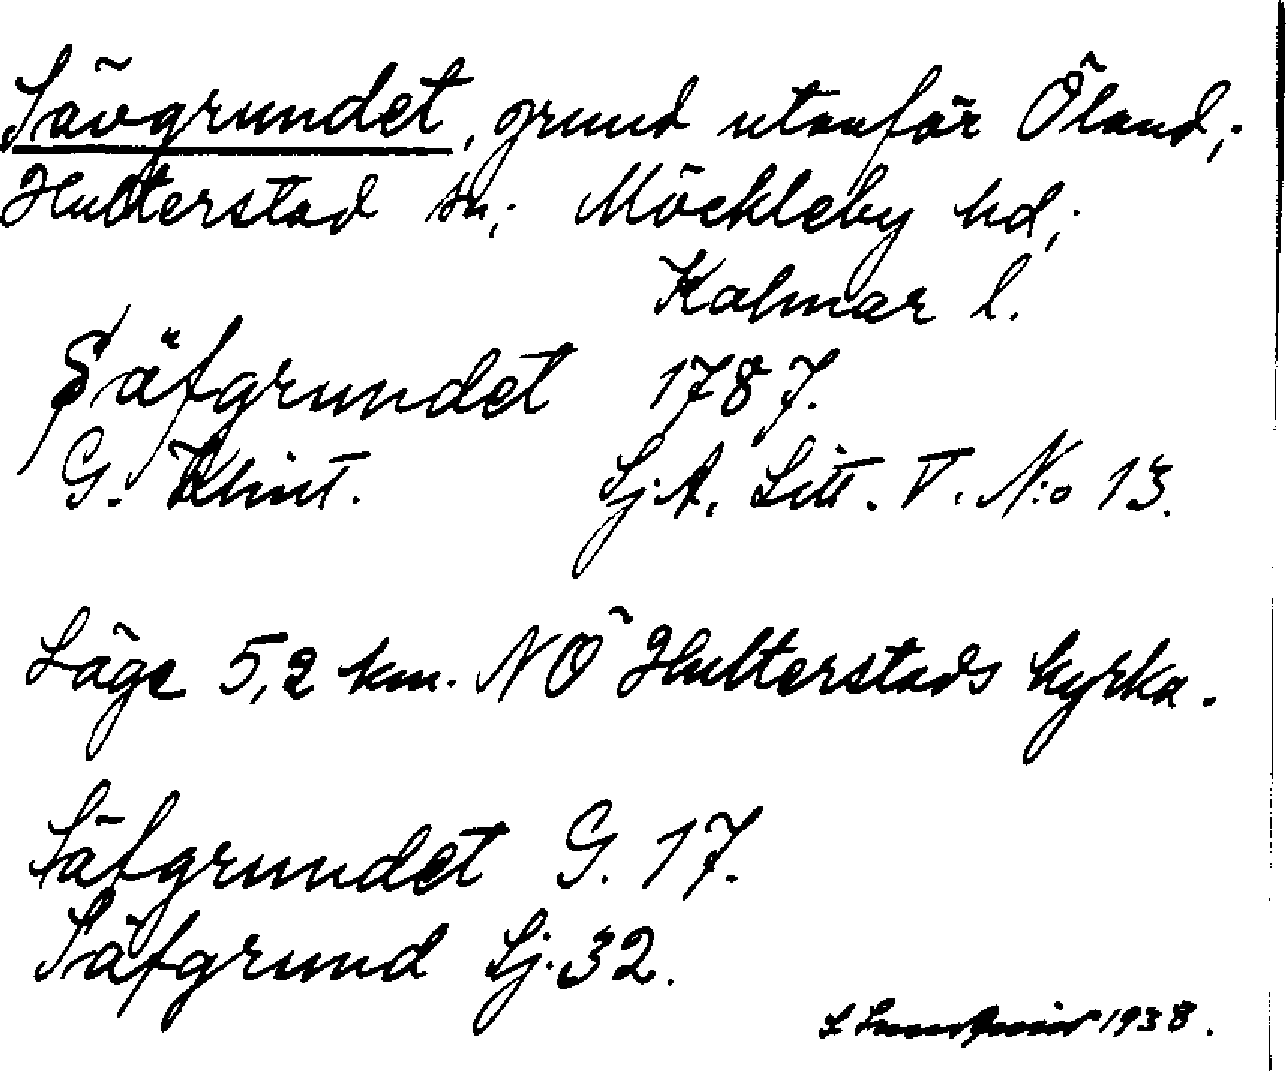 Sävgrundet, grund utanför Öland;
Hulterstad sn; Möckleby hd;
Kalmar l.
Säfgrundet 1787.
G. Klint. Sj.A. Litt. V. N:o 13.
Läge 5,2 km. NÖ Hulterstads kyrka.
Säfgrundet G. 17.
Säfgrund Sj. 32.
1938.